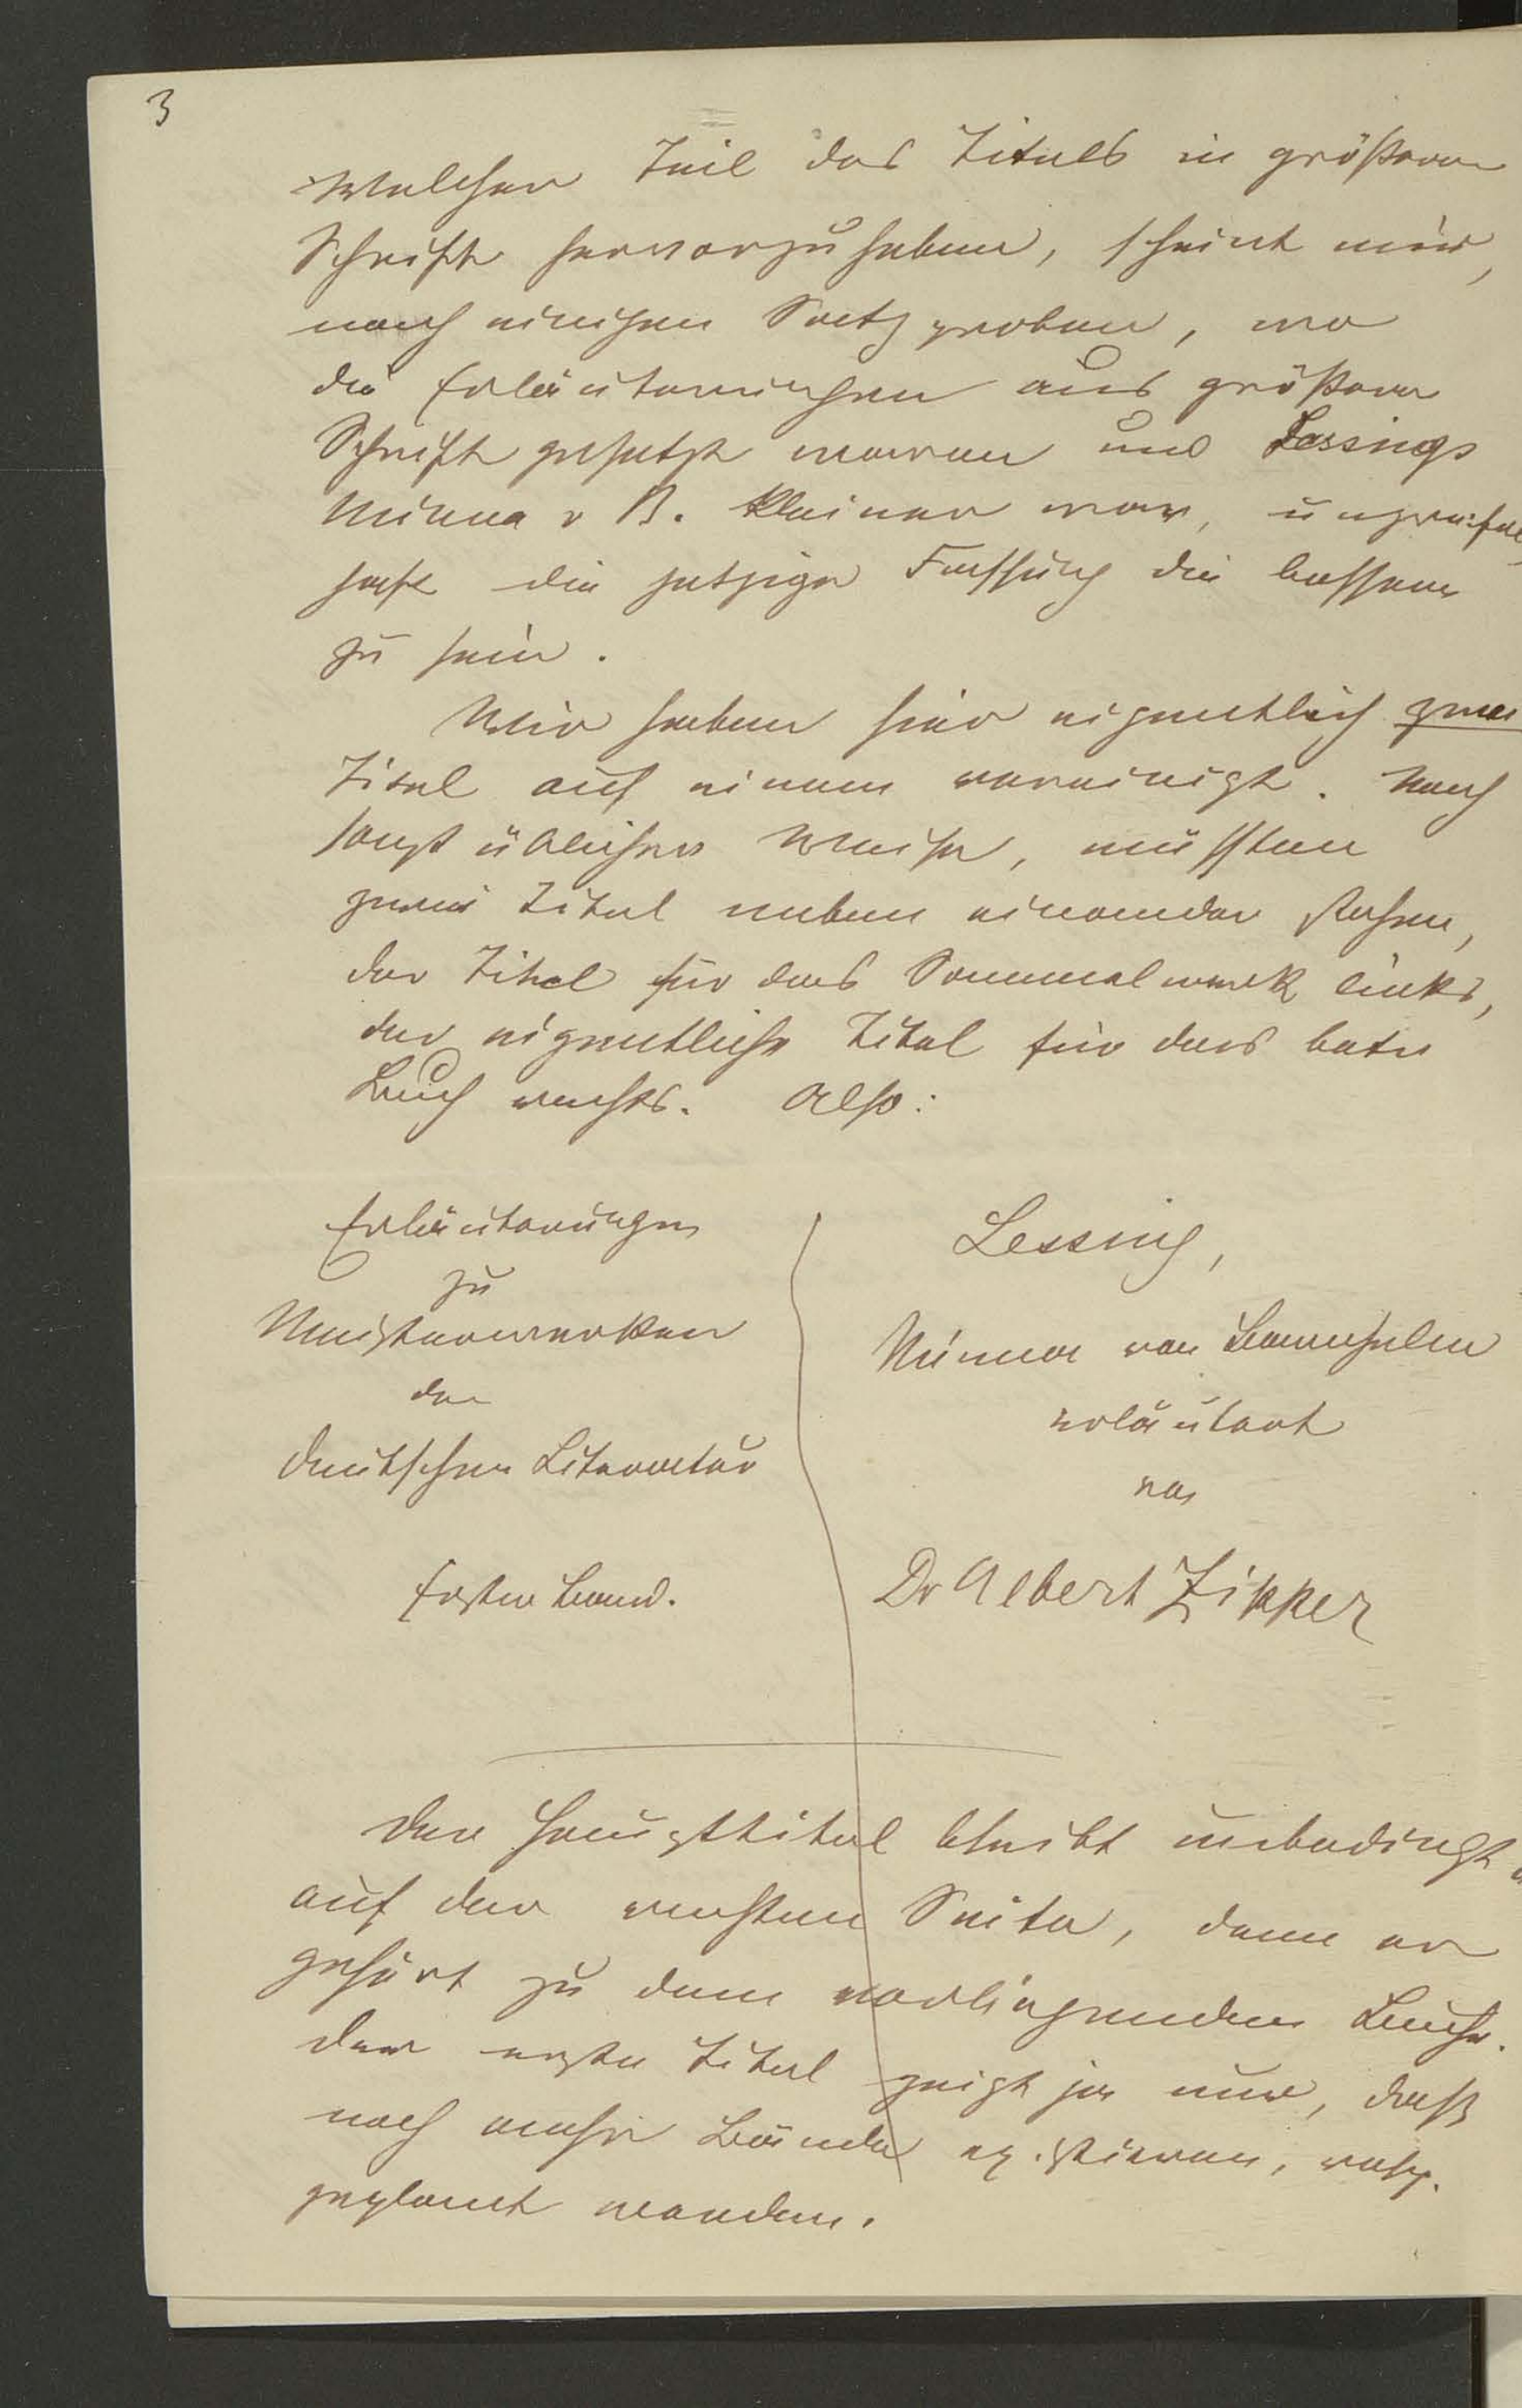 3
Welcher Teil des Titels in größerer
Schrift hervorzuheben, scheint mir,
nach einigen Satzproben, wo
die Erläuterungen aus größerer
Schrift gesetzt waren und Lessings
Minna v B. kleiner war, unzweifel-
haft die jetzige Fassung die bessere
zu sein.
Wir haben hier eigentlich zwei
Titel auf einem vereinigt. Nach
sonst üblicher Weise, müssten
zwei Titel neben einander stehen,
der Titel für das Sammelwerk links,
der eigentliche Titel für das betr
Buch rechts. Also:
Erläuterungen
zu
Meisterwerken
der
deutschen Literatur
Erster Band.
Lessing,
Minna von Barnhelm
erläutert
von
Dr Albert Zipper
Der Haupttitel bleibt unbedingt
auf der rechten Seite, denn er
gehört zu dem vorliegenden Buche.
Der erste Titel zeigt ja nur, daß
noch mehr Bände existieren, resp.
geplant werden.